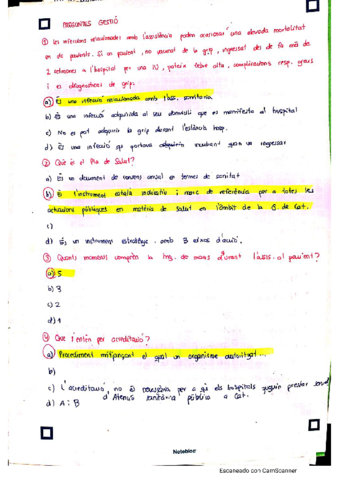 PREGUNTES GESTIÓ
① Les infeccions relacionades amb l'assistència poden ocasionar una elevada mortalitat
en els pacients. Si un pacient, no vacunat de la grip, ingressat des de fa més de
2 setmanes a l'hospital per una IQ, pateix febre alta, complicacions resp. greus
i es diagnostica de grip:
a) És una infecció relacionada amb l'ass. sanitària.
b) És una infecció adquirida al seu domicili que es manifesta al hospital
c) No es pot adquirir la grip durant l'estància hosp.
d) És una infecció que portava incubant quan va ingressar
② Què és el Pla de Salut?
a) És un document de consens social en termes de sanitat
b) És l'instrument indicatiu i marc de referència per a totes les
actuacions públiques en matèria de Salut en l'àmbit de la G. de Cat.
c)
d) És un instrument estratègic amb 3 eixos d'acció.
③ Quants moments comprèn la hig. de mans durant l'assis. al pacient?
a) 5
b) 3
c) 2
d) 1
④ Que s'entén per acreditació?
a) Procediment mitjançant el qual un organisme autoritzat...
b)
c) L'acreditació, no és necessària per a els hospitals puguin prestar servei
d'Atenció sanitària pública a Cat.
d) A i B
Notebloc
Escaneado con CamScanner